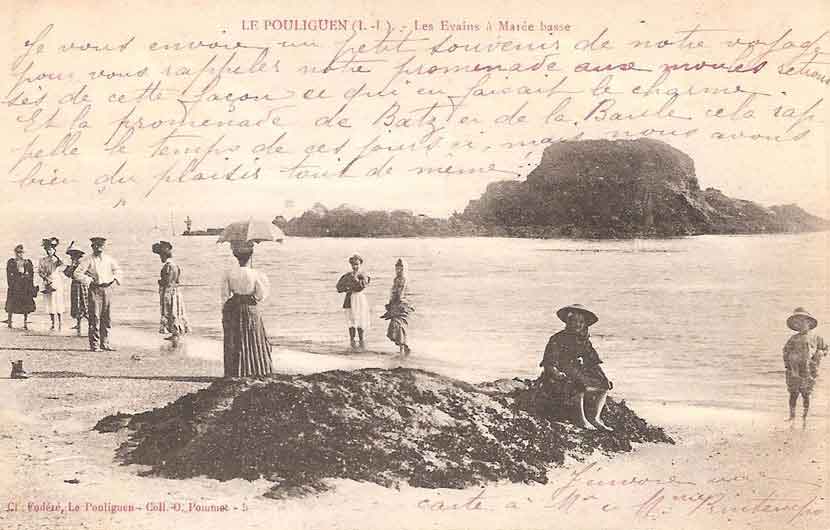 LE POULIGUEN (L.-I.). - Les Evains à Marée basse
Je vous envoie un petit souvenir de notre voyage
pour vous rappeler notre promenade aux moules
sés de cette façon ce qui en faisait le charme.
Et la promenade de Batz et de la Baule cela rap
pelle le temps de ces jours ci, mais nous avons
bien du plaisir tout de même.
J'envoie une
carte à Mr & Mme Printemps
Cl. Fodéré, Le Pouliguen - Coll. O. Pommet - 5